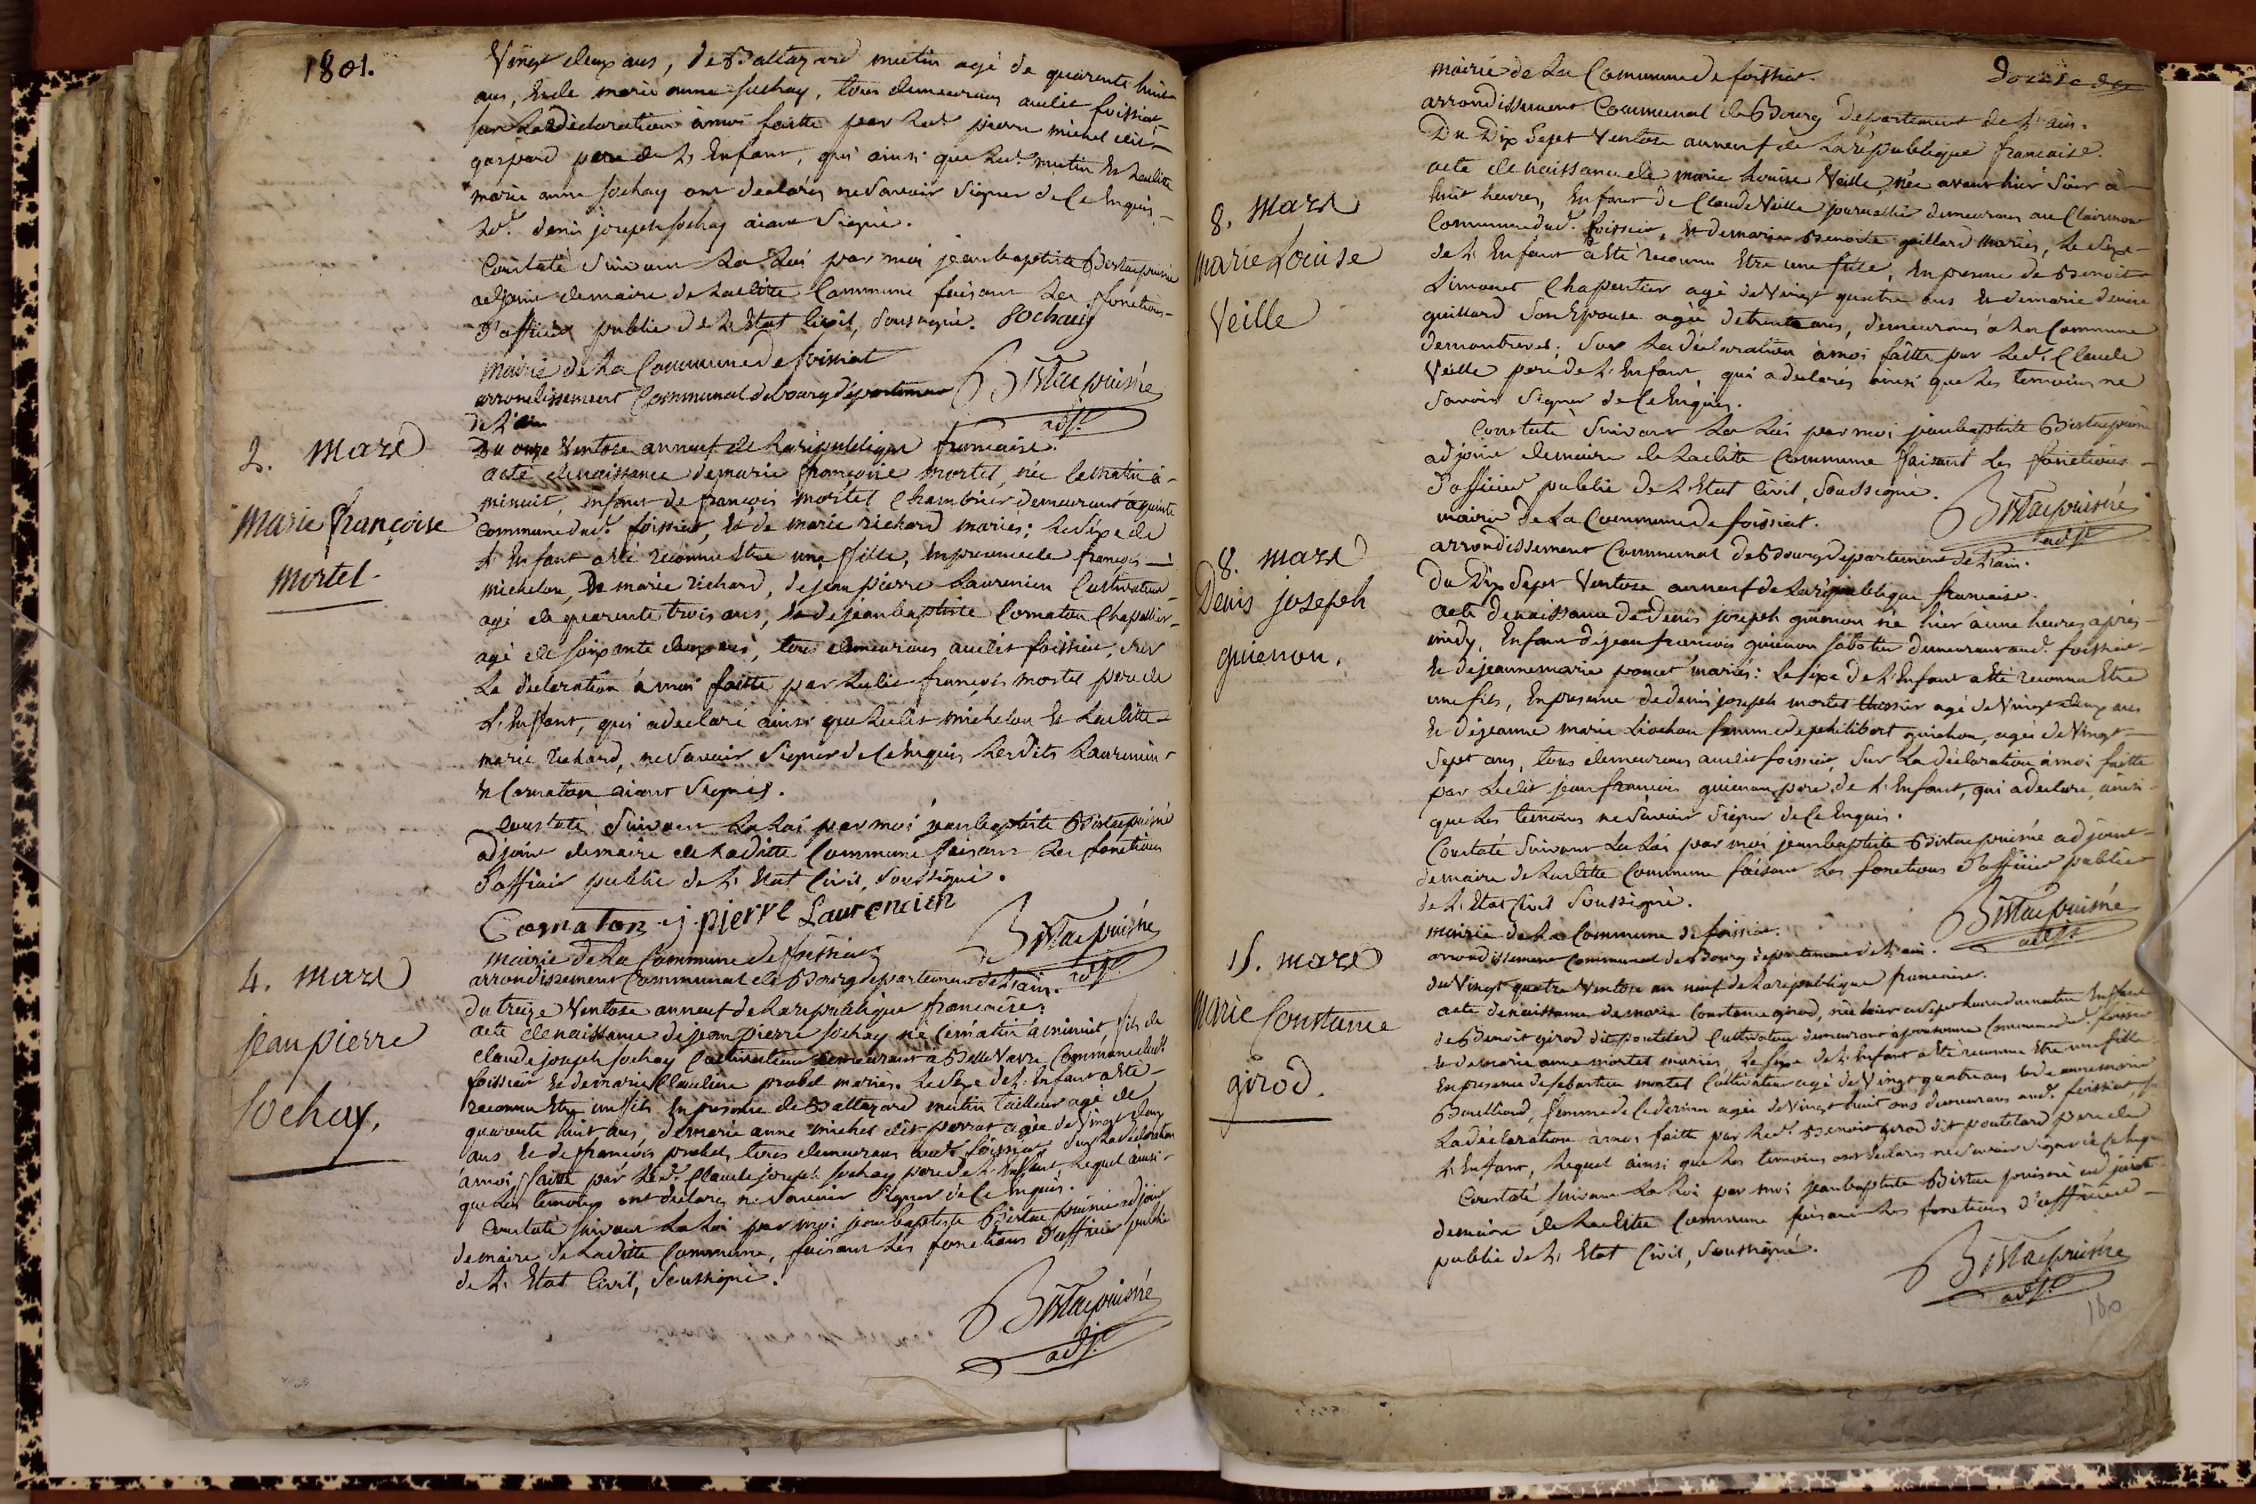 1801.
Vingt deux ans, de Baltazard mutin agé de quarente huit
ans, Et de marie anne sochay, tous demeurans audit foissiat
sur La déclaration à moi faitte par Led. pierre michel dit
gaspard pere de L'Enfant, qui ainsi que Led. mutin Et Laditte
marie anne sochay ont declarés ne Savoir Signer de Ce Enquis,
Led. denis joseph sochay aiant Signé.
Constaté Suivant La Loi par moi jeanbaptiste Bistac puisné
adjoint demaire de Laditte Commune faisant Les fonctions
d'officier public de L'Etat Civil, Soussigné. Sochay
mairie de La Commune de foissiat
arrondissement Communal de bourg departement
de L'ain
Bistac puisné
adjt.
2. mars
Marie françoise
mortel
Du onze Ventose an neuf de La republique francaise.
acte denaissance de marie françoise mortel, née Cematin à
minuit, enfant de françois mortel Chambrier demeurant à
Commune dud. foissiat, Et de marie richard mariés; Le séxe de
L'Enfant a été reconnu Etre une fille, En presence de françois
michelon, De marie richard, de jean pierre Laurencien Cultivateur
agé de quarente trois ans, Et de jeanbaptiste Cornaton Chapellier
agé de soixante deux ans, tous demeurans audit foissiat, sur
La declaration à moi faitte par Ledit francois mortel pere de
L'Enfant, qui a declaré ainsi que Ledit michelon Et Laditte
marie richard, ne Savoir Signer de Ce Enquis, Lesdits Laurencien
Et Cornaton aiant Signés.
Constaté Suivant La Loi par moi jeanbaptiste Bistac puisné
adjoint demaire de Laditte Commune faisant Les fonctions
d'officier public de L'Etat Civil, Soussigné.
Cornaton j. pierre Laurencien
Bistac puisné
adjt.
mairie de La Commune de foissiat
arrondissement Communal de Bourg departement de L'ain.
4. mars
jean pierre
Sochay,
du treize Ventose an neuf de La republique francaise.
acte denaissance de jean pierre sochay né Cematin à minuit, fils de
claude joseph sochay Cultivateur demeurant a Commune dudt.
foissiat Et de marie Claudine probel mariés. Le Sexe de L'Enfant a été
reconnu Etre un fils En presence de Baltazard mutin Tailleur agé de
quarente huit ans, demarie anne michel dit perrat agée de Vingt deux
ans Et de francois probel, tous demeurans audt. foissiat Sur La déclaration
à moi faitte par Led. Claude joseph sochay pere de L'Enfant, Lequel ainsi
que Les temoins ont declarés ne Savoir Signer de Ce Enquis.
Constaté Suivant La Loi par moi jeanbaptiste Bistac puisné adjoint
demaire de Laditte Commune, faisant Les fonctions d'officier public
de L'Etat Civil, Soussigné.
Bistac puisné
adjt.
mairie de La Commune de foissiat.
arrondissement Communal de Bourg departement de L'ain.
8. mars
Marie Louise
Veille
Du Dix Sept Ventose an neuf de La république francaise.
acte denaissance de marie Louise Veille, née avant hier Soir à
huit heures, Enfant de Claude Veille journallier demeurant au Clairmont
Commune dud. foissiat, Et demarie Benoite gaillard mariés, Le Sexe
de L'Enfant a été reconnu Etre une fille, En presence de Benoit
Limonet Chapentier agé de Vingt quatre ans Et demarie denise
guillard Son Epouse agée detrente ans, demeurans à La Commune
demontrevel; Sur La déclaration à moi faitte par Led. Claude
Veille pere de L'Enfant, qui a declarés ainsi que Les temoins ne
Savoir Signer de Ce Enquis.
Constaté Suivant La Loi par moi jeanbaptiste Bistac puisné
adjoint demaire de Laditte Commune faisant Les fonctions
d'officier public de L'Etat Civil, Soussigné.
Bistac puisné
adjt.
mairie de La Commune de foissiat.
arrondissement Communal de Bourg departement de L'ain.
8. mars
Denis joseph
guienon.
Du Dix Sept Ventose an neuf de La république francaise.
acte denaissance de denis joseph guienon né hier à une heures après
midy, Enfant de jean francois guienon sabotier demeurant aud. foissiat
Et de jeanne marie poncet mariés: Le séxe de L'Enfant a été reconnu Etre
un fils, En presence de denis joseph mortel tissier agé de Vingt deux ans
Et de jeanne marie Liochon femme de philibert guichon, agée de Vingt
Sept ans, tous demeurans audit foissiat, Sur La déclaration à moi faitte
par Ledit jean francois guienon pere de L'Enfant, qui a declaré, ainsi
que Les temoins ne Savoir Signer de Ce Enquis.
Constaté Suivant La Loi par moi jeanbaptiste Bistac puisné adjoint
demaire de Laditte Commune faisant Les fonctions d'officier public
de L'Etat Civil Soussigné.
Bistac puisné
adjt.
mairie de La Commune de foissiat.
arrondissement Communal de Bourg departement de L'ain.
15. mars
Marie Constance
girod.
du Vingt quatre Ventose an neuf de La république francaise.
acte denaissance de marie Constance girod, née hier à Sept heures dumatin Enfant
de Benoit girod dit poutelard Cultivateur demeurant à Commune dud. foissiat
Et de marie anne mortel mariés, Le séxe de L'Enfant a été reconnu Etre une fille
En presence de sebastien mortel Cultivateur agé de Vingt quatre ans Et de anne marie
femme de Ce dernier agée de Vingt huit ans demeurans aud. foissiat, Sur
La déclaration à moi faitte par Led. Benoit girod dit poutelard pere de
L'Enfant, Lequel ainsi que Les temoins ont declarés ne Savoir Signer de Ce Enquis
Constaté Suivant La Loi par moi jeanbaptiste Bistac puisné adjoint
demaire de Laditte Commune faisant Les fonctions d'officier
public de L'Etat Civil, Soussigné.
Bistac puisné
adjt.
180